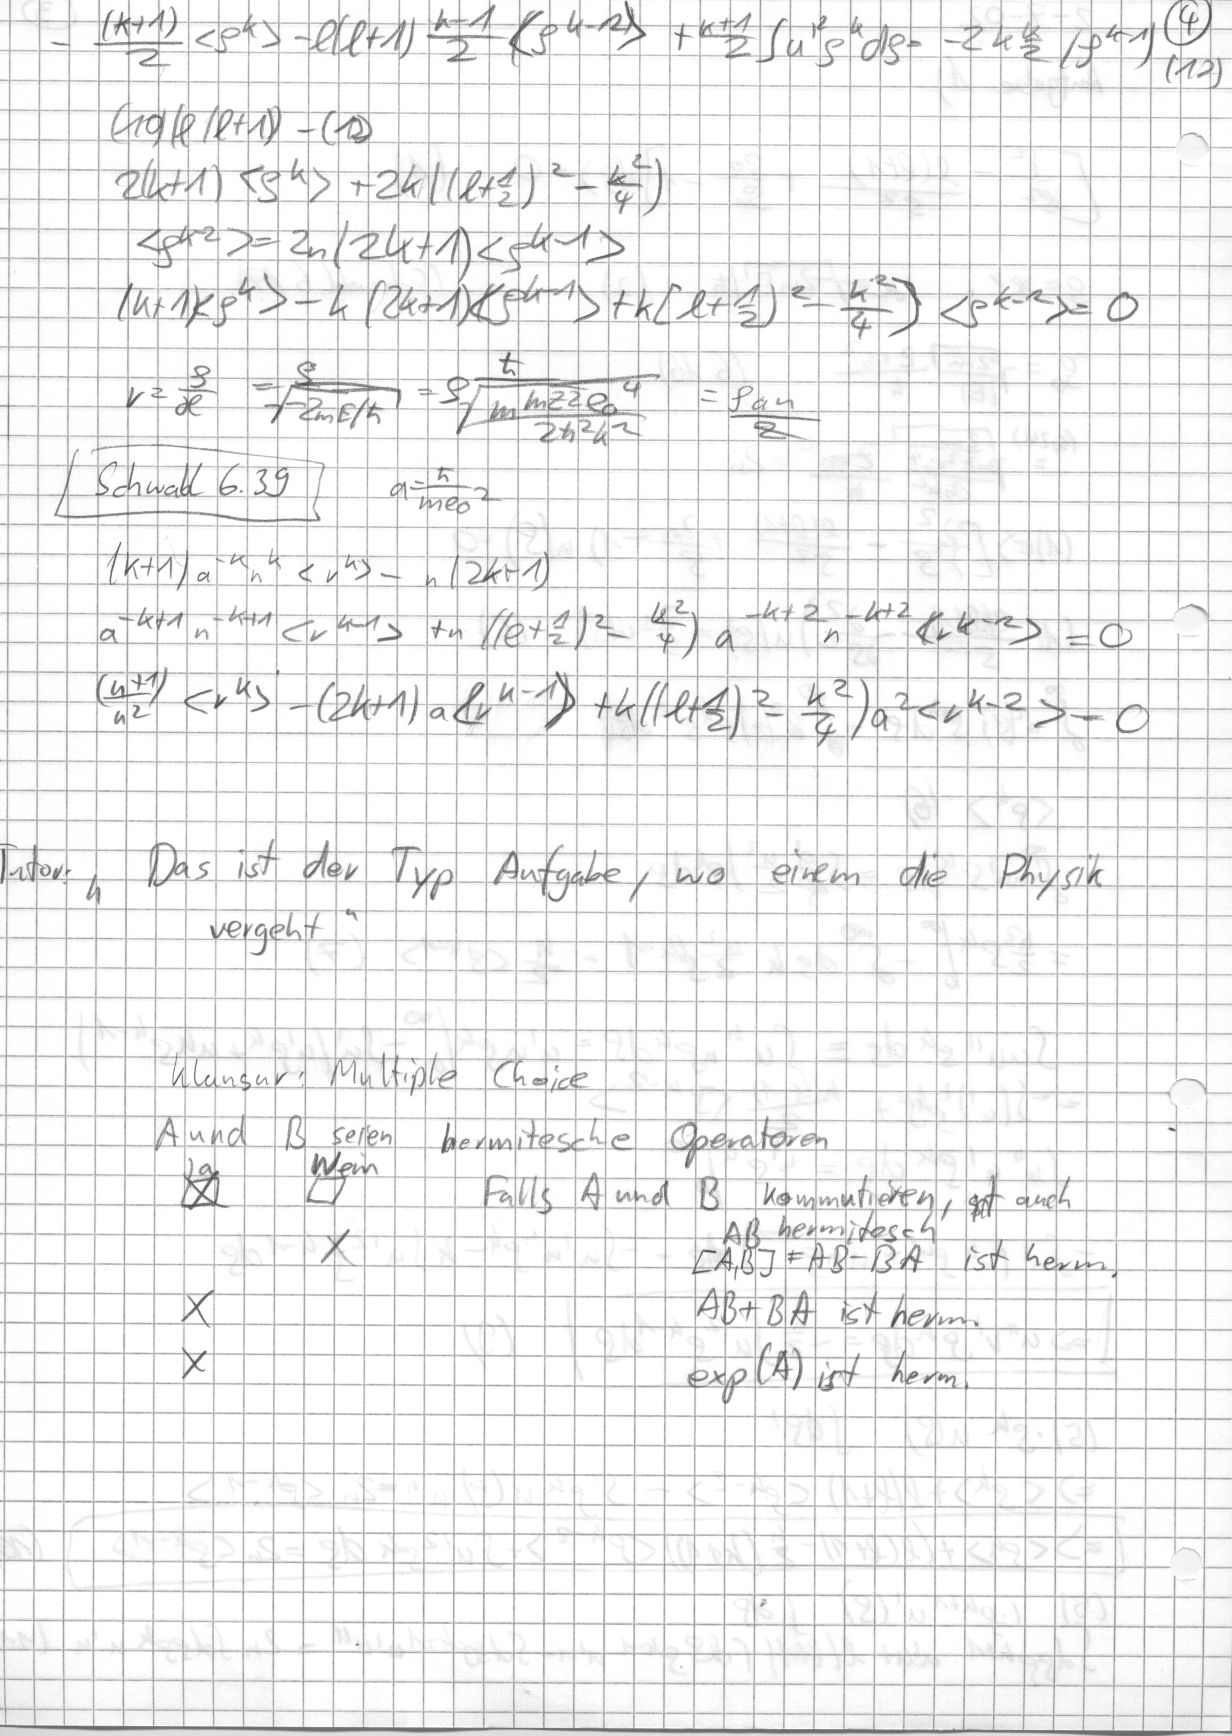 - (k+1)/2 <ρ^k> - l(l+1) (k-1)/2 <ρ^{k-2}> + (k+1)/2 ∫u'^2 ρ^k dρ = -2n k/2 <ρ^{k-1}> (12)
④
(10)(l(l+1)) - (12)
2(k+1) <ρ^k> + 2k((l+1/2)^2 - k^2/4)
<ρ^{k-2}> = 2n(2k+1)<ρ^{k-1}>
(k+1)<ρ^k> - k(2k+1)<ρ^{k-1}> + k[(l+1/2)^2 - k^2/4)] <ρ^{k-2}> = 0
r = ρ/ϰ = ρ/√(-2mE/ħ) = ρ ħ/√(m mz^2e_0^4/2ħ^2n^2) = ρan/z
Schwabl 6.39 a = ħ/me_0^2
(k+1) a^{-k} n^{-k} <r^k> - n(2k+1)
a^{-k+1} n^{-k+1} <r^{k-1}> + n((l+1/2)^2 - k^2/4) a^{-k+2} n^{-k+2} <r^{k-2}> = 0
(k+1)/n^2 <r^k> - (2k+1) a<r^{k-1}> + k((l+1/2)^2 - k^2/4) a^2 <r^{k-2}> = 0
Tutor: „Das ist der Typ Aufgabe, wo einem die Physik
vergeht“
Klausur: Multiple Choice
A und B seien hermitesche Operatoren
Ja Nein
☒ ☐ Falls A und B kommutieren, ist auch
AB hermitesch
X [A,B] = AB - BA ist herm.
X AB + BA ist herm.
X exp(A) ist herm.